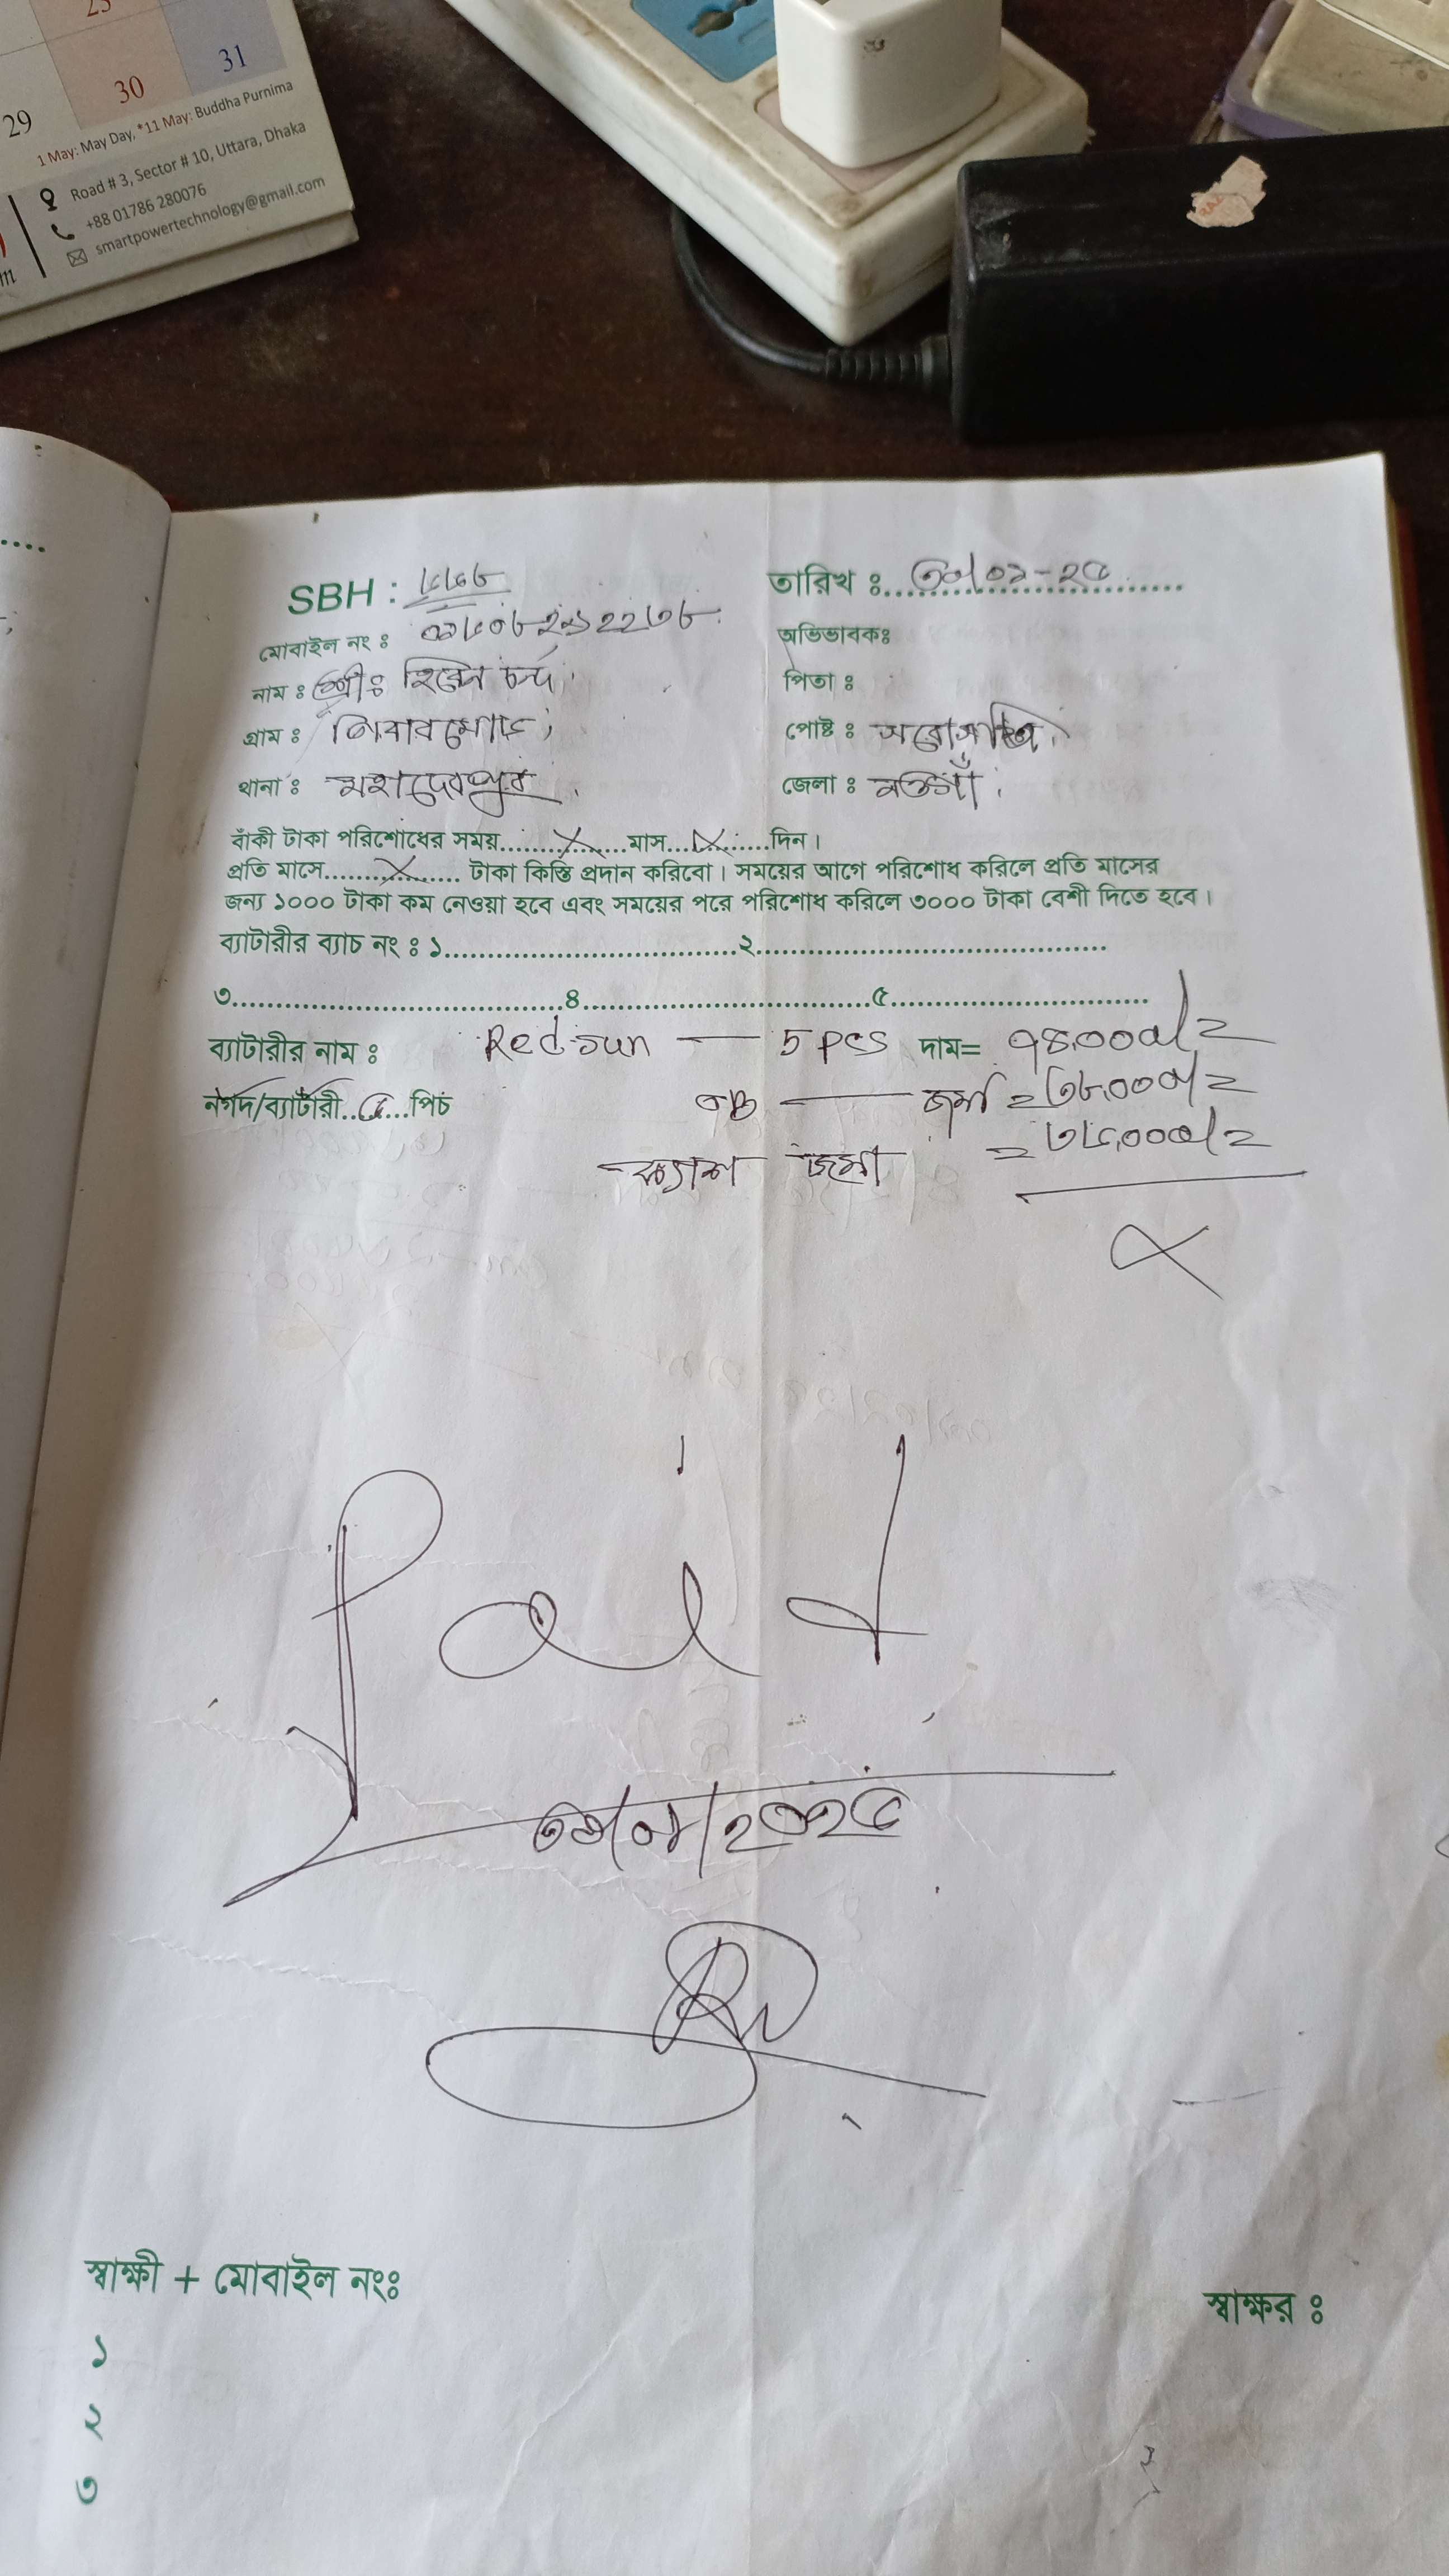 25
29 30 31
1 May: May Day, *11 May: Buddha Purnima
Road # 3, Sector # 10, Uttara, Dhaka
+88 01786 280076
smartpowertechnology@gmail.com
SBH :
তারিখ ঃ
মোবাইল নং ঃ
অভিভাবকঃ
নাম ঃ শ্রীঃ
পিতা ঃ
গ্রাম ঃ
পোষ্ট ঃ
থানা ঃ মহাদেবপুর
জেলা ঃ নওগাঁ
বাঁকী টাকা পরিশোধের সময়.......X.......মাস...X......দিন।
প্রতি মাসে........X........ টাকা কিস্তি প্রদান করিবো। সময়ের আগে পরিশোধ করিলে প্রতি মাসের
জন্য ১০০০ টাকা কম নেওয়া হবে এবং সময়ের পরে পরিশোধ করিলে ৩০০০ টাকা বেশী দিতে হবে।
ব্যাটারীর ব্যাচ নং ঃ ১..................................২..................................
৩..................................৪..................................৫..................................
ব্যাটারীর নাম ঃ Red-sun — 5 pcs দাম= ৭৪,০০০/=
নগদ/ব্যাটারী..৫...পিচ OB — জমা = ৩৮,০০০/=
ক্যাশ জমা =
Paid
স্বাক্ষী + মোবাইল নংঃ
স্বাক্ষর ঃ
১
২
৩